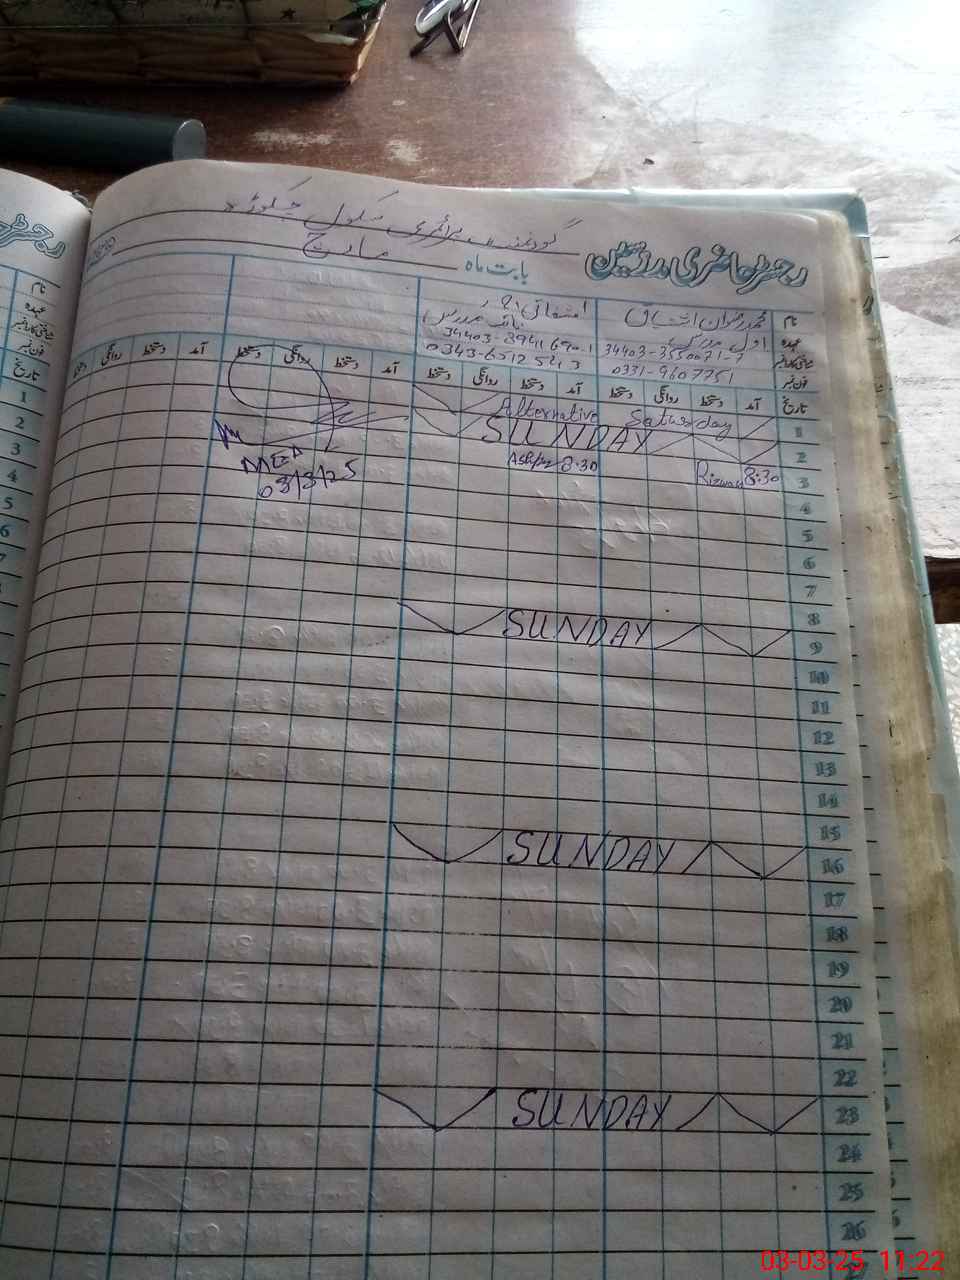 گورنمنٹ پرائمری سکول
رجسٹر حاضری مدرسین
بابت ماہ مارچ
نام محمد رضوان اشتیاق
عہدہ اول مدرس
شناختی کارڈ نمبر 34403-3550071-7
فون نمبر 0331-9607751
نائب مدرس
34403-8941690-1
تاریخ آمد دستخط روانگی دستخط آمد دستخط روانگی دستخط آمد دستخط روانگی دستخط آمد دستخط روانگی
1 Alternative Saturday
2 SUNDAY
3 Rizwan 8:30 8:30
MEA
03/3/25
4
5
6
7
8
9 SUNDAY
10
11
12
13
14
15
16 SUNDAY
17
18
19
20
21
22
23 SUNDAY
24
25
26
رجسٹر
نام
عہدہ
شناختی کارڈ نمبر
فون نمبر
تاریخ
1
2
3
4
5
6
7
03-03-25 11:22